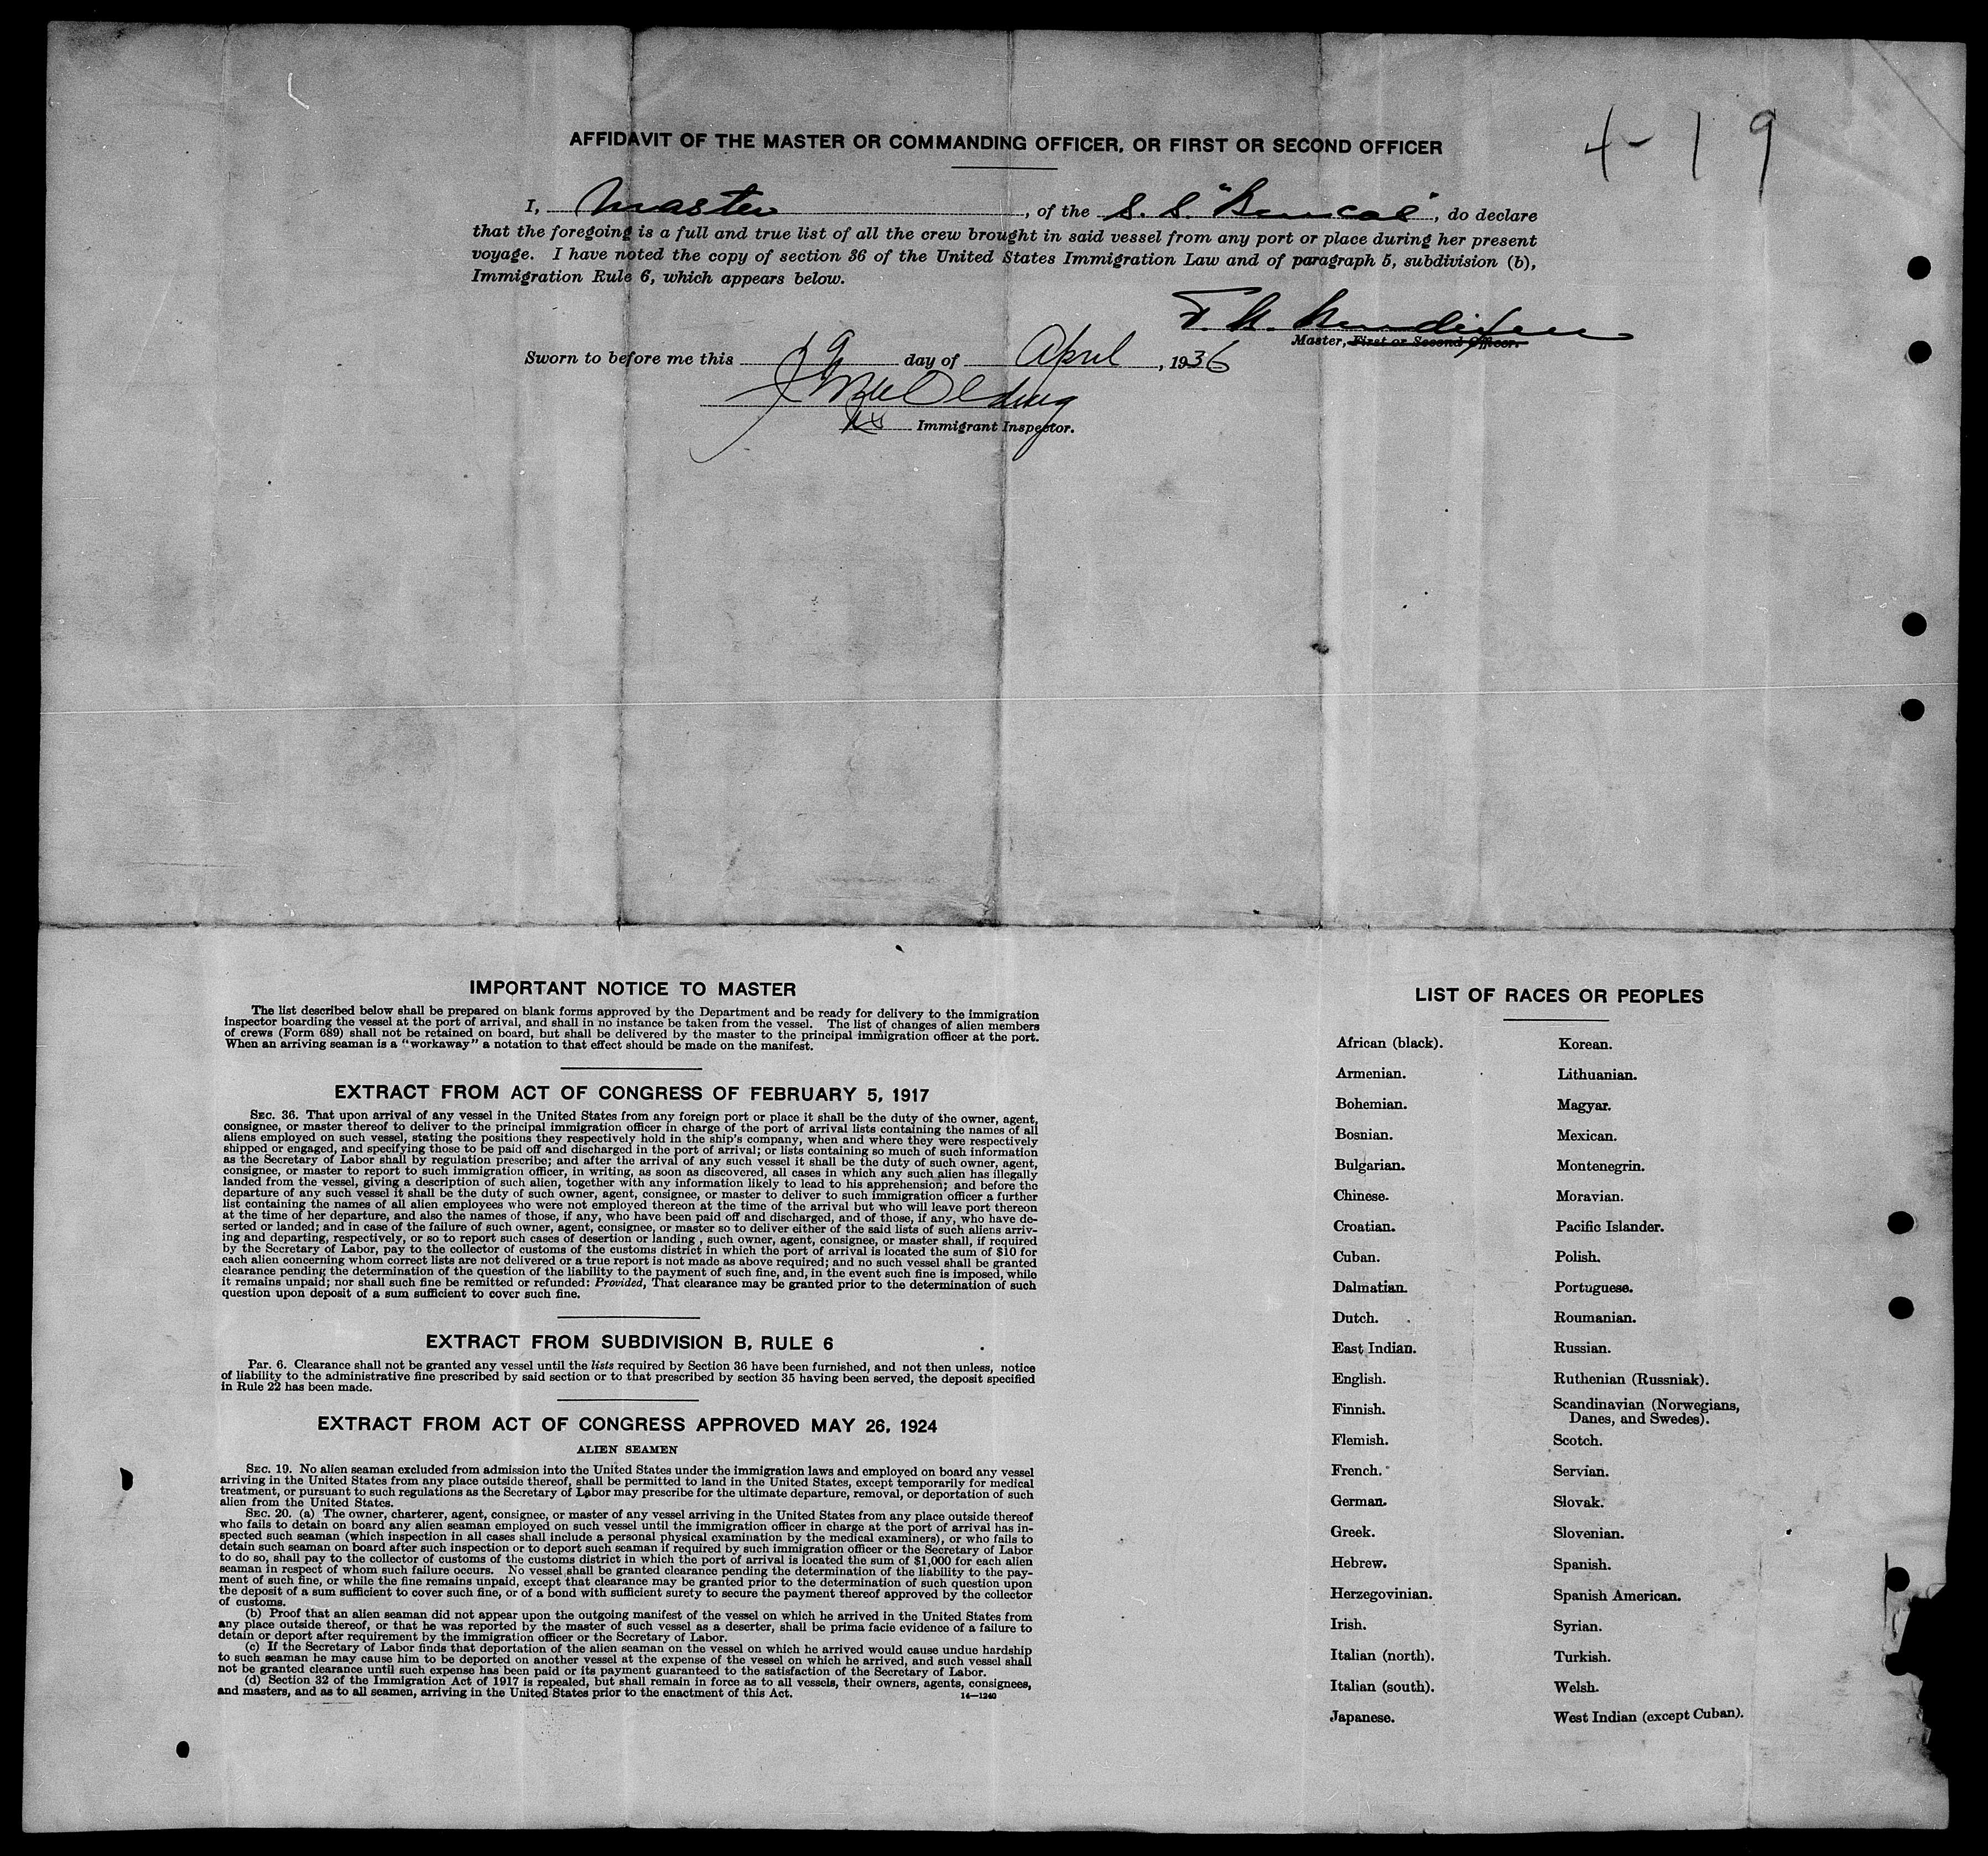 4-19
AFFIDAVIT OF THE MASTER OR COMMANDING OFFICER, OR FIRST OR SECOND OFFICER
I, Master, of the S. S. "", do declare
that the foregoing is a full and true list of all the crew brought in said vessel from any port or place during her present
voyage. I have noted the copy of section 36 of the United States Immigration Law and of paragraph 5, subdivision (b),
Immigration Rule 6, which appears below.
Master, First or Second Officer.
Sworn to before me this 19 day of April, 1936
Immigrant Inspector.
IMPORTANT NOTICE TO MASTER
The list described below shall be prepared on blank forms approved by the Department and be ready for delivery to the immigration
inspector boarding the vessel at the port of arrival, and shall in no instance be taken from the vessel. The list of changes of alien members
of crews (Form 689) shall not be retained on board, but shall be delivered by the master to the principal immigration officer at the port.
When an arriving seaman is a "workaway" a notation to that effect should be made on the manifest.
EXTRACT FROM ACT OF CONGRESS OF FEBRUARY 5, 1917
SEC. 36. That upon arrival of any vessel in the United States from any foreign port or place it shall be the duty of the owner, agent,
consignee, or master thereof to deliver to the principal immigration officer in charge of the port of arrival lists containing the names of all
aliens employed on such vessel, stating the positions they respectively hold in the ship's company, when and where they were respectively
shipped or engaged, and specifying those to be paid off and discharged in the port of arrival; or lists containing so much of such information
as the Secretary of Labor shall by regulation prescribe; and after the arrival of any such vessel it shall be the duty of such owner, agent,
consignee, or master to report to such immigration officer, in writing, as soon as discovered, all cases in which any such alien has illegally
landed from the vessel, giving a description of such alien, together with any information likely to lead to his apprehension; and before the
departure of any such vessel it shall be the duty of such owner, agent, consignee, or master to deliver to such immigration officer a further
list containing the names of all alien employees who were not employed thereon at the time of the arrival but who will leave port thereon
at the time of her departure, and also the names of those, if any, who have been paid off and discharged, and of those, if any, who have de-
serted or landed; and in case of the failure of such owner, agent, consignee, or master so to deliver either of the said lists of such aliens arriv-
ing and departing, respectively, or so to report such cases of desertion or landing , such owner, agent, consignee, or master shall, if required
by the Secretary of Labor, pay to the collector of customs of the customs district in which the port of arrival is located the sum of $10 for
each alien concerning whom correct lists are not delivered or a true report is not made as above required; and no such vessel shall be granted
clearance pending the determination of the question of the liability to the payment of such fine, and, in the event such fine is imposed, while
it remains unpaid; nor shall such fine be remitted or refunded: Provided, That clearance may be granted prior to the determination of such
question upon deposit of a sum sufficient to cover such fine.
EXTRACT FROM SUBDIVISION B, RULE 6
PAR. 6. Clearance shall not be granted any vessel until the lists required by Section 36 have been furnished, and not then unless, notice
of liability to the administrative fine prescribed by said section or to that prescribed by section 35 having been served, the deposit specified
in Rule 22 has been made.
EXTRACT FROM ACT OF CONGRESS APPROVED MAY 26, 1924
ALIEN SEAMEN
SEC. 19. No alien seaman excluded from admission into the United States under the immigration laws and employed on board any vessel
arriving in the United States from any place outside thereof, shall be permitted to land in the United States, except temporarily for medical
treatment, or pursuant to such regulations as the Secretary of Labor may prescribe for the ultimate departure, removal, or deportation of such
alien from the United States.
SEC. 20. (a) The owner, charterer, agent, consignee, or master of any vessel arriving in the United States from any place outside thereof
who fails to detain on board any alien seaman employed on such vessel until the immigration officer in charge at the port of arrival has in-
spected such seaman (which inspection in all cases shall include a personal physical examination by the medical examiners), or who fails to
detain such seaman on board after such inspection or to deport such seaman if required by such immigration officer or the Secretary of Labor
to do so, shall pay to the collector of customs of the customs district in which the port of arrival is located the sum of $1,000 for each alien
seaman in respect of whom such failure occurs. No vessel shall be granted clearance pending the determination of the liability to the pay-
ment of such fine, or while the fine remains unpaid, except that clearance may be granted prior to the determination of such question upon
the deposit of a sum sufficient to cover such fine, or of a bond with sufficient surety to secure the payment thereof approved by the collector
of customs.
(b) Proof that an alien seaman did not appear upon the outgoing manifest of the vessel on which he arrived in the United States from
any place outside thereof, or that he was reported by the master of such vessel as a deserter, shall be prima facie evidence of a failure to
detain or deport after requirement by the immigration officer or the Secretary of Labor.
(c) If the Secretary of Labor finds that deportation of the alien seaman on the vessel on which he arrived would cause undue hardship
to such seaman he may cause him to be deported on another vessel at the expense of the vessel on which he arrived, and such vessel shall
not be granted clearance until such expense has been paid or its payment guaranteed to the satisfaction of the Secretary of Labor.
(d) Section 32 of the Immigration Act of 1917 is repealed, but shall remain in force as to all vessels, their owners, agents, consignees,
and masters, and as to all seamen, arriving in the United States prior to the enactment of this Act.
14—1240
LIST OF RACES OR PEOPLES
African (black).
Armenian.
Bohemian.
Bosnian.
Bulgarian.
Chinese.
Croatian.
Cuban.
Dalmatian.
Dutch.
East Indian.
English.
Finnish.
Flemish.
French.
German.
Greek.
Hebrew.
Herzegovinian.
Irish.
Italian (north).
Italian (south).
Japanese.
Korean.
Lithuanian.
Magyar.
Mexican.
Montenegrin.
Moravian.
Pacific Islander.
Polish.
Portuguese.
Roumanian.
Russian.
Ruthenian (Russniak).
Scandinavian (Norwegians,
Danes, and Swedes).
Scotch.
Servian.
Slovak.
Slovenian.
Spanish.
Spanish American.
Syrian.
Turkish.
Welsh.
West Indian (except Cuban).